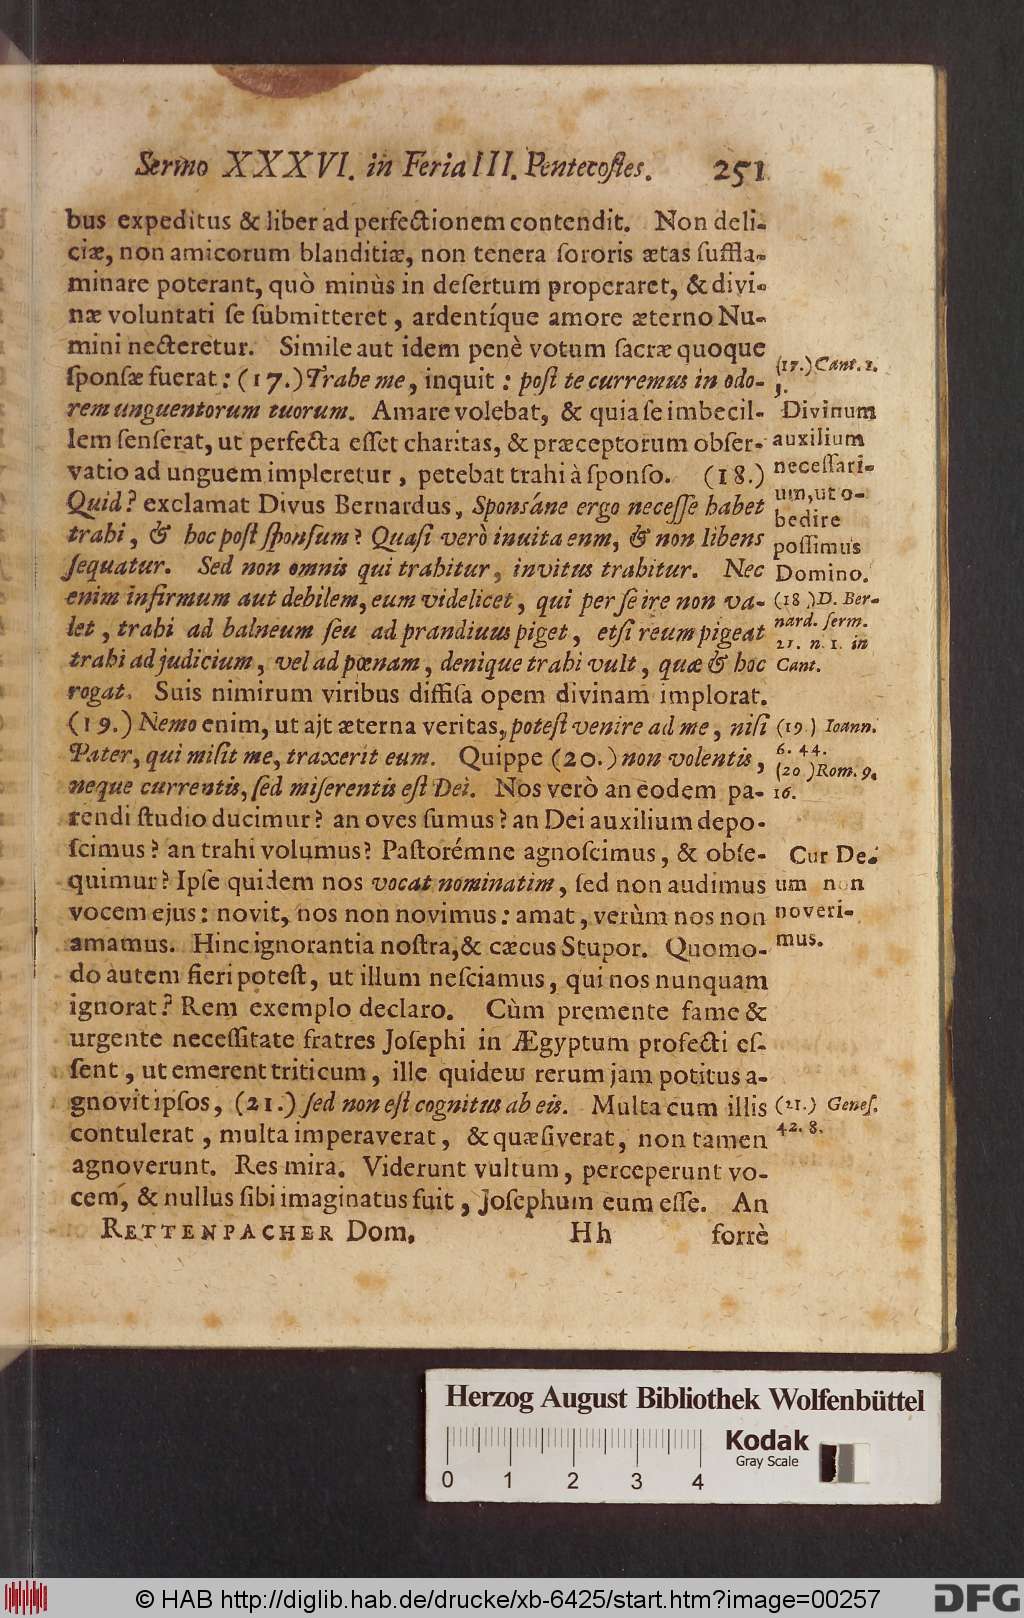 Sermo XXXVI. in Feria III. Pentecostes. 251
bus expeditus & liber ad perfectionem contendit. Non deli-
ciæ, non amicorum blanditiæ, non tenera sororis ætas suffla-
minare poterant, quò minùs in desertum properaret, & divi-
næ voluntati se submitteret, ardentíque amore æterno Nu-
mini necteretur. Simile aut idem penè votum sacræ quoque
sponsæ fuerat: (17.) Trahe me, inquit: post te curremus in odo-
rem unguentorum tuorum. Amare volebat, & quia se imbecil-
lem senserat, ut perfecta esset charitas, & præceptorum obser-
vatio ad unguem impleretur, petebat trahi à sponso. (18.)
Quid? exclamat Divus Bernardus, Sponsáne ergo necesse habet
trahi, & hoc post sponsum? Quasi verò inuita enm, & non libens
sequatur. Sed non omnis qui trahitur, invitus trahitur. Nec
enim infirmum aut debilem, eum videlicet, qui per se ire non va-
let, trahi ad balneum seu ad prandiuus piget, etsi reum pigeat
trahi ad judicium, vel ad pœnam, denique trahi vult, quæ & hoc
rogat. Suis nimirum viribus diffisa opem divinam implorat.
(19.) Nemo enim, ut ajt æterna veritas, potest venire ad me, nisi
Pater, qui misit me, traxerit eum. Quippe (20.) non volentis,
neque currentis, sed miserentis est Dei. Nos verò an eodem pa-
rendi studio ducimur? an oves sumus? an Dei auxilium depo-
scimus? an trahi volumus? Pastorémne agnoscimus, & obse-
quimur? Ipse quidem nos vocat nominatim, sed non audimus
vocem ejus: novit, nos non novimus: amat, verùm nos non
amamus. Hinc ignorantia nostra, & cæcus Stupor. Quomo-
do autem fieri potest, ut illum nesciamus, qui nos nunquam
ignorat? Rem exemplo declaro. Cùm premente fame &
urgente necessitate fratres Josephi in Ægyptum profecti es-
sent, ut emerent triticum, ille quidem rerum jam potitus a-
gnovit ipsos, (21.) sed non est cognitus ab eis. Multa cum illis
contulerat, multa imperaverat, & quæsiverat, non tamen
agnoverunt. Res mira. Viderunt vultum, perceperunt vo-
cem, & nullus sibi imaginatus fuit, Josephum eum esse. An
RETTENPACHER Dom. Hh forrè
(17.) Cant. 1.
3.
Divinum
auxilium
necessari-
um, ut o-
bedire
possimus
Domino.
(18.) D. Ber-
nard. serm.
21. n. 1. in
Cant.
(19.) Ioann.
6. 44.
(20.) Rom. 9.
16.
Cur De-
um non
noveri-
mus.
(21.) Genes.
42. 8.
Herzog August Bibliothek Wolfenbüttel
0 1 2 3 4
Kodak
Gray Scale
© HAB http://diglib.hab.de/drucke/xb-6425/start.htm?image=00257
DFG